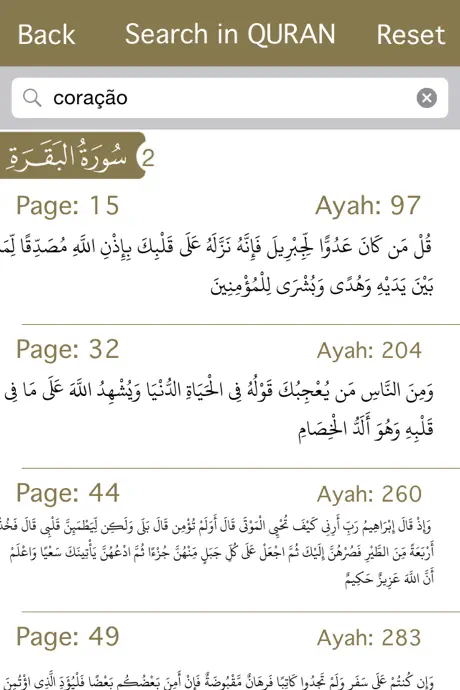 Back Search in QURAN Reset
coração
سُورَةُ البَقَرَةِ 2
Page: 15 Ayah: 97
قُلْ مَن كَانَ عَدُوًّا لِّجِبْرِيلَ فَإِنَّهُ نَزَّلَهُ عَلَى قَلْبِكَ بِإِذْنِ اللَّهِ مُصَدِّقًا لِّمَا
بَيْنَ يَدَيْهِ وَهُدًى وَبُشْرَى لِلْمُؤْمِنِينَ
Page: 32 Ayah: 204
وَمِنَ النَّاسِ مَن يُعْجِبُكَ قَوْلُهُ فِي الْحَيَاةِ الدُّنْيَا وَيُشْهِدُ اللَّهَ عَلَى مَا فِي
قَلْبِهِ وَهُوَ أَلَدُّ الْخِصَامِ
Page: 44 Ayah: 260
وَإِذْ قَالَ إِبْرَاهِيمُ رَبِّ أَرِنِي كَيْفَ تُحْيِي الْمَوْتَى قَالَ أَوَلَمْ تُؤْمِن قَالَ بَلَى وَلَكِن لِّيَطْمَئِنَّ قَلْبِي قَالَ فَخُذْ
أَرْبَعَةً مِّنَ الطَّيْرِ فَصُرْهُنَّ إِلَيْكَ ثُمَّ اجْعَلْ عَلَى كُلِّ جَبَلٍ مِّنْهُنَّ جُزْءًا ثُمَّ ادْعُهُنَّ يَأْتِينَكَ سَعْيًا وَاعْلَمْ
أَنَّ اللَّهَ عَزِيزٌ حَكِيمٌ
Page: 49 Ayah: 283
وَإِن كُنتُمْ عَلَى سَفَرٍ وَلَمْ تَجِدُوا كَاتِبًا فَرِهَانٌ مَّقْبُوضَةٌ فَإِنْ أَمِنَ بَعْضُكُم بَعْضًا فَلْيُؤَدِّ الَّذِي اؤْتُمِنَ